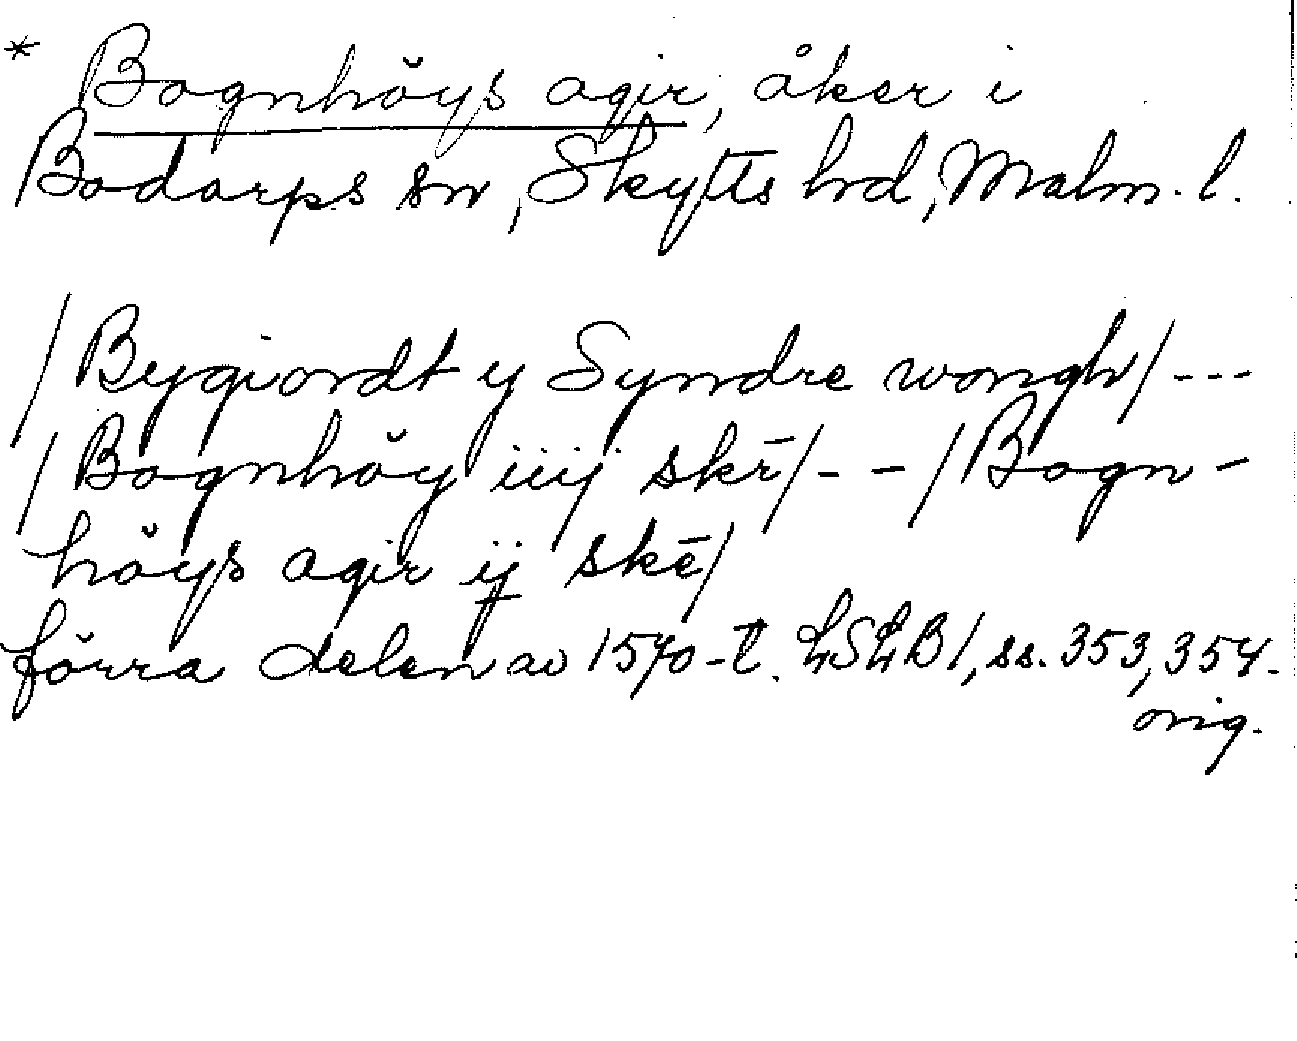 * Bognhöys agir, åker i
Bodarps sn, Skytts hd, Malm. l.
/Bygiordt y Syndre wongh/ ---
/Bognhöy iiij skr̄/ - - /Bogn-
höys agir ij skē/
förra delen av 1570-t. LSLB 1, ss. 353, 354.
orig.